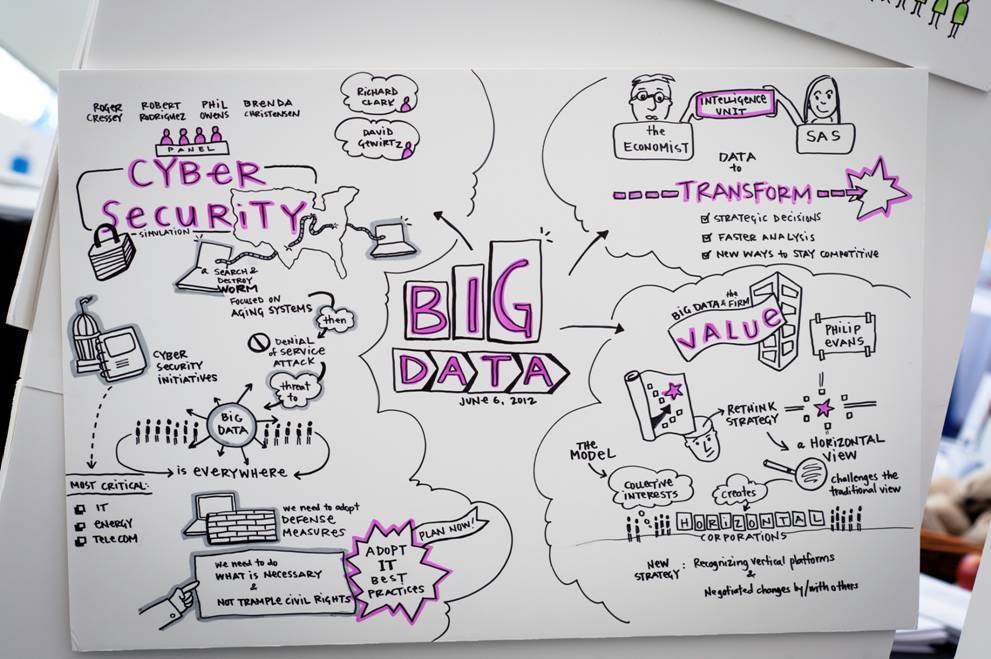 ROGER CRESSEY
ROBERT RODRIGUEZ
PHIL OWENS
BRENDA CHRISTENSEN
RICHARD CLARK
DAVID GEWIRTZ
PANEL
CYBER
SECURITY
SIMULATION
a SEARCH &
DESTROY
WORM
FOCUSED ON
AGING SYSTEMS
then
DENIAL
of SERVICE
ATTACK
threat
to
CYBER
SECURITY
INITIATIVES
BIG
DATA
is EVERYWHERE
MOST CRITICAL:
IT
ENERGY
TELECOM
we need to adopt
DEFENSE
MEASURES
PLAN NOW!
ADOPT
IT
BEST
PRACTICES
we need to do
WHAT IS NECESSARY
&
NOT TRAMPLE CIVIL RIGHTS
BIG
DATA
JUNE 6, 2012
the
ECONOMIST
INTELLIGENCE
UNIT
SAS
DATA
to
TRANSFORM
STRATEGIC DECISIONS
FASTER ANALYSIS
NEW WAYS to STAY COMPETITIVE
BIG DATA & the FIRM
VALUE
PHILIP
EVANS
RETHINK
STRATEGY
a HORIZONTAL
VIEW
challenges the
traditional view
THE
MODEL
COLLECTIVE
INTERESTS
creates
HORIZONTAL
CORPORATIONS
NEW
STRATEGY : Recognizing vertical platforms
&
Negotiated changes by/with others